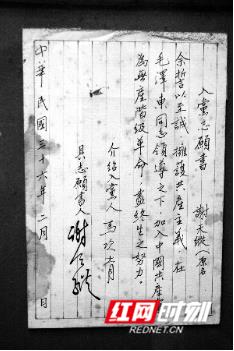 入黨志願書 謝天縱
余誓以至誠擁護共產主義在
毛澤東同志領導之下加入中國共產
為無產階級革命盡終生之努力
介紹黨人 馬
具志願書人 謝
中華民國三十六年二月 日
红网时刻
REDNET.CN